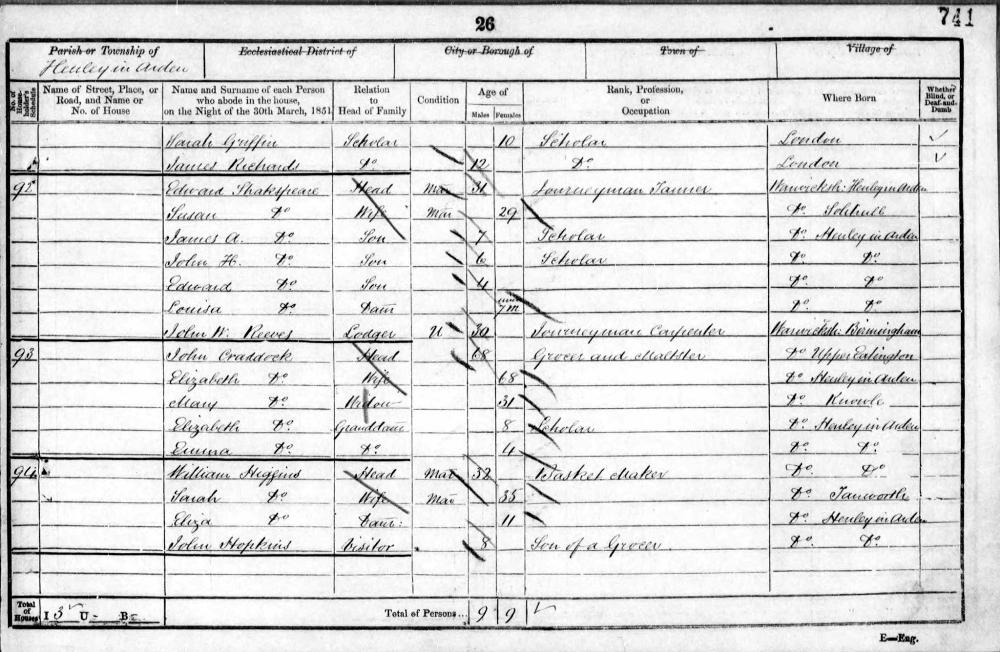 26
741
Parish or Township of Ecclesiastical District of City or Borough of Town of Village of
Henley in Arden
No. of House-holder's Schedule Name of Street, Place, or Road, and Name or No. of House Name and Surname of each Person who abode in the house, on the Night of the 30th March, 1851 Relation to Head of Family Condition Age of Males Females Rank, Profession, or Occupation Where Born Whether Blind, or Deaf-and-Dumb
Sarah Griffin Scholar 10 Scholar London
James Richards Do 12 Do London
92 Edward Shakspeare Head Mar 31 Journeyman Tanner Warwicksh: Henley in Arden
Susan Do Wife Mar 29 Do Solihull
James A. Do Son 7 Scholar Do Henley in Arden
John H. Do Son 6 Scholar Do Do
Edward Do Son 4 Do Do
Louisa Do Daur 7m Do Do
John W. Reeves Lodger U 30 Journeyman Carpenter Warwicksh: Birmingham
93 John Craddock Head 68 Grocer and Maltster Do Upper Eatington
Elizabeth Do Wife 68 Do Henley in Arden
Mary Do Widow 31 Do Knowle
Elizabeth Do Granddaur 8 Scholar Do Henley in Arden
Emma Do Do 4 Do Do
94 William Higgins Head Mar 32 Basket Maker Do Do
Sarah Do Wife Mar 35 Do Tanworth
Eliza Do Daur: 11 Do Henley in Arden
John Hopkins Visitor 8 Son of a Grocer Do Do
Total of Houses I 3 U - B - Total of Persons... 9 9
E—Eng.